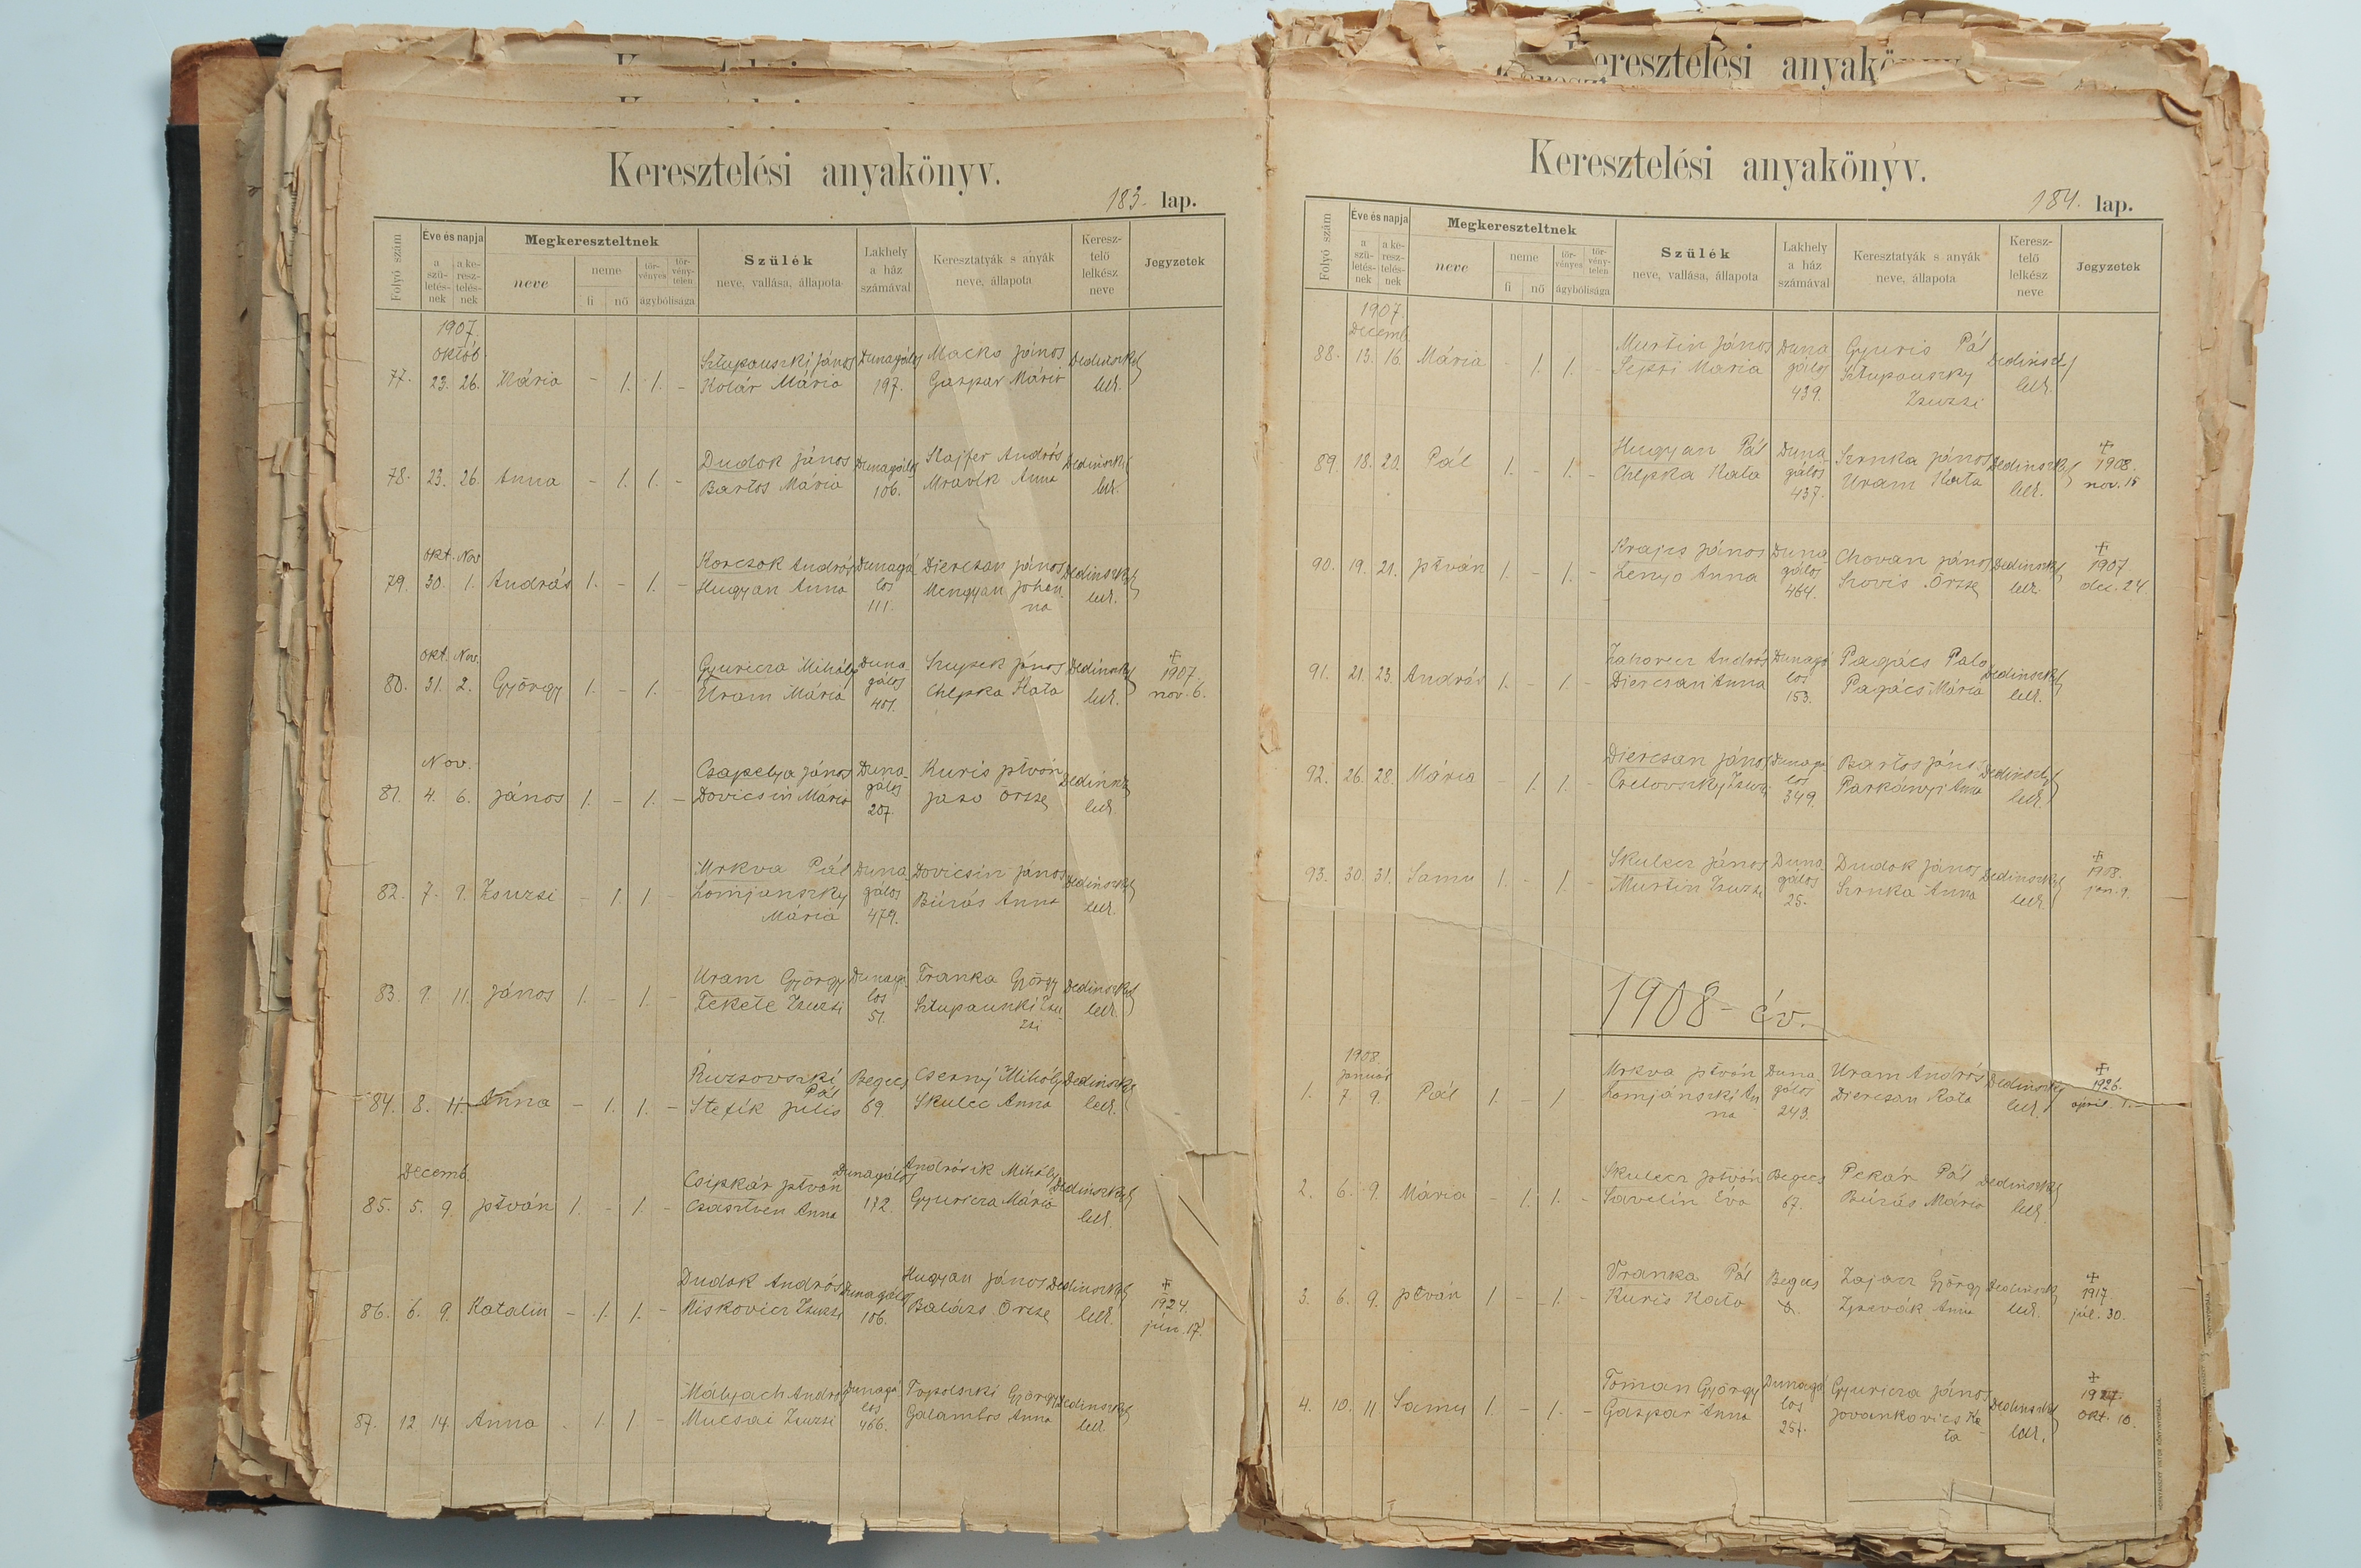 Keresztelési anyakönyv.
183. lap.
Folyó szám
Éve és napja
a szü-letés-nek
a ke-resz-telés-nek
Megkereszteltnek
neve
neme
fi
nő
tör-vényes
tör-vény-telen
ágybólisága
Szülék
neve, vallása, állapota
Lakhely a ház számával
Keresztatyák s anyák
neve, állapota
Keresz-telő lelkész neve
Jegyzetek
1907.
Októb.
77. 23. 26. Mária - 1. 1. -
Sztupauszki János
Kolár Mária
Dunagálos
197.
Macko János
Gaspar Mária
Dedinszky
lelk.
78. 23. 26. Anna - 1. 1. -
Dudok János
Bartos Mária
Dunagálos
106.
Slajfer András
Mravik Anna
Dedinszky
lelk.
Okt. Nov.
79. 30. 1. András 1. - 1. -
Korcsok András
Hugyan Anna
Dunagá
los
111.
Diercsan János
Mengyan Johan
na
Dedinszky
lelk.
Okt. Nov.
80. 31. 2. György 1. - 1. -
Gyuricza Mihály
Uram Mária
Duna
gálos
401.
Chlpka Kata
Dedinszky
lelk.
1907.
nov. 6.
Nov.
81. 4. 6. János 1. - 1. -
Dovicsin Mária
Duna-
gálos
207.
Kuris István
Jaso Örzse
Dedinszky
lelk.
82. 7. 9. Zsuzsi - 1. 1. -
Mrkva Pál
Lomjanszky
Mária
Duna-
gálos
479.
Dovicsin János
Búzás Anna
Dedinszky
lelk.
83. 9. 11. János 1. - 1. -
Uram György
Fekete Zsuzsi
Dunagá
los
51.
Franka György
Sztupauszki Zsu
zsi
Dedinszky
lelk.
84. 8. 11. Anna - 1. 1. -
Ruzsovszki
Pál
Stefik Julis
Begecs
69.
Cserny Mihály
Skulec Anna
Dedinszky
lelk.
Decemb.
85. 5. 9. István 1. - 1. -
Csipkár István
Anna
Dunagálos
172.
Andrásik Mihály
Gyuricza Mária
Dedinszky
lelk.
86. 6. 9. Katalin - 1. 1. -
Dudok András
Miskovicz Zsuzsi
Dunagálos
106.
Hugyan János
Balázs Örzse
Dedinszky
lelk.
1924.
jún. 17.
87. 12 14. Anna - 1. 1. -
Mucsai Zsuzsi
Dunagá
los
466.
Topolszki György
Galambos Anna
Dedinszky
lelk.
Keresztelési anyakönyv.
184. lap.
Folyó szám
Éve és napja
a szü-letés-nek
a ke-resz-telés-nek
Megkereszteltnek
neve
neme
fi
nő
tör-vényes
tör-vény-telen
ágybólisága
Szülék
neve, vallása, állapota
Lakhely a ház számával
Keresztatyák s anyák
neve, állapota
Keresz-telő lelkész neve
Jegyzetek
1907.
Decemb.
88. 13. 16. Mária - 1. 1. -
Murtin János
Mária
Duna
gálos
439.
Gyuris Pál
Sztupauszky
Zsuzsi
Dedinszky
lelk.
89. 18. 20. Pál 1. - 1. -
Hugyan Pál
Chlpka Kata
Duna
gálos
437.
Szrnka János
Uram Kata
Dedinszky
lelk.
1908.
nov. 15
90. 19. 21. István 1. - 1. -
Krajcs János
Lenyo Anna
Duna
gálos
464.
Chovan János
Örzse
Dedinszky
lelk.
1907.
dec. 24.
91. 21. 23. András 1. - 1. -
Zahorecz András
Diercsan Anna
Dunagá
los
153.
Pagács Palo
Pagács Mária
Dedinszky
lelk.
92. 26. 28. Mária - 1. 1. -
Diercsan János
Zsuzsi
Dunagá
los
349.
Bartos János
Parkányi Anna
Dedinszky
lelk.
93. 30. 31. Samu 1. - 1. -
Skulecz János
Murtin Zsuzsi
Duna
gálos
25.
Dudok János
Szrnka Anna
Dedinszky
lelk.
1908.
jan. 9.
1908-év.
1908.
Január
1. 7 9. Pál 1. - 1 -
Mrkva István
Lomjánszki An
na
Duna
gálos
243.
Uram András
Diercsan Kata
Dedinszky
lelk.
1926.
ápril. 1.
2. 6. 9. Mária - 1. 1. -
Skulecz István
Savelin Éva
Begecs
67.
Pekár Pál
Búzás Mária
Dedinszky
lelk.
3. 6. 9. István 1 - 1. -
Vranka Pál
Kuris Kata
Begecs
Zajacz György
Anna
Dedinszky
lelk.
1917.
júl. 30.
4. 10. 11 Samu 1. - 1. -
Toman György
Gaspar Anna
Dunagá
los
257.
Gyuricza János
Jovankovics Ka
ta
Dedinszky
lelk.
okt. 10.